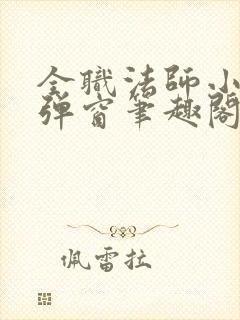 全職法師小
彈窗筆趣閣
佩雷拉